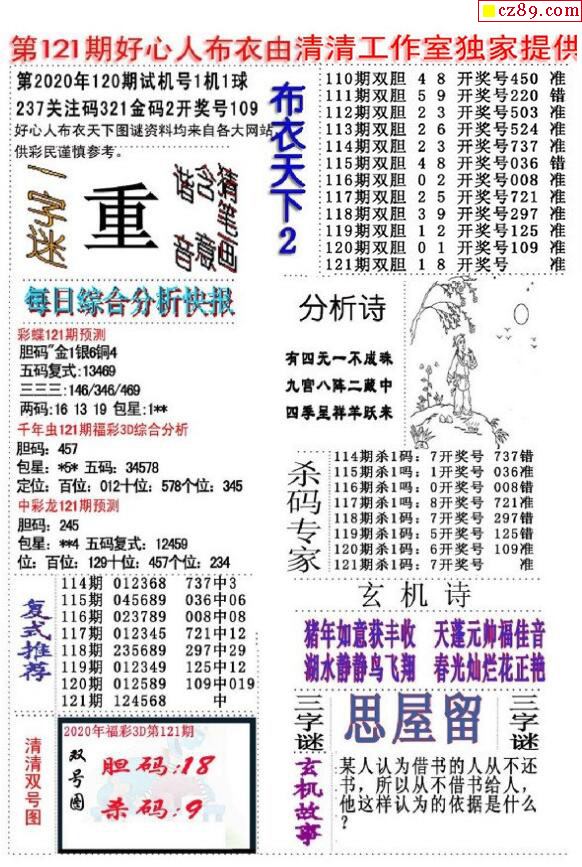 cz89.com
第121期好心人布衣由清清工作室独家提供
第2020年120期试机号1机1球
237关注码321金码2开奖号109
好心人布衣天下图谜资料均来自各大网站,
供彩民谨慎参考。
一字迷
重
谐含猜
音意笔画
布衣天下2
110期双胆 4 8 开奖号450 准
111期双胆 5 9 开奖号220 错
112期双胆 2 3 开奖号503 准
113期双胆 2 6 开奖号524 准
114期双胆 2 3 开奖号737 准
115期双胆 4 8 开奖号036 错
116期双胆 0 2 开奖号008 准
117期双胆 2 5 开奖号721 准
118期双胆 3 9 开奖号297 准
119期双胆 1 2 开奖号125 准
120期双胆 0 1 开奖号109 准
121期双胆 1 8 开奖号 准
每日综合分析快报
彩蝶121期预测
胆码"金1银6铜4
五码复式:13469
三三三:146/346/469
两码:16 13 19 包星:1**
千年虫121期福彩3D综合分析
胆码: 457
包星: *5* 五码: 34578
定位: 百位: 012十位: 578个位: 345
中彩龙121期预测
胆码: 245
包星: **4 五码复式: 12459
位: 百位: 129十位: 457个位: 234
分析诗
有四元一不成珠
九宫八阵二藏中
四季呈祥羊跃来
杀码专家
114期杀1码: 7开奖号 737错
115期杀1吗: 1开奖号 036准
116期杀1吗: 0开奖号 008错
117期杀1吗: 8开奖号 721准
118期杀1码: 7开奖号 297错
119期杀1码: 5开奖号 125错
120期杀1码: 6开奖号 109准
121期杀1码: 7开奖号 准
复式推荐
114期 012368 737中3
115期 045689 036中06
116期 023789 008中08
117期 012345 721中12
118期 235689 297中29
119期 012349 125中12
120期 012589 109中019
121期 124568 中
玄机诗
猪年如意获丰收 天蓬元帅福佳音
湖水静静鸟飞翔 春光灿烂花正艳
清清双号图
2020年福彩3D第121期
双号图
胆码:18
杀码:9
三字谜
思屋留
三字谜
玄机故事
某人认为借书的人从不还
书，所以从不借书给人，
他这样认为的依据是什么
？